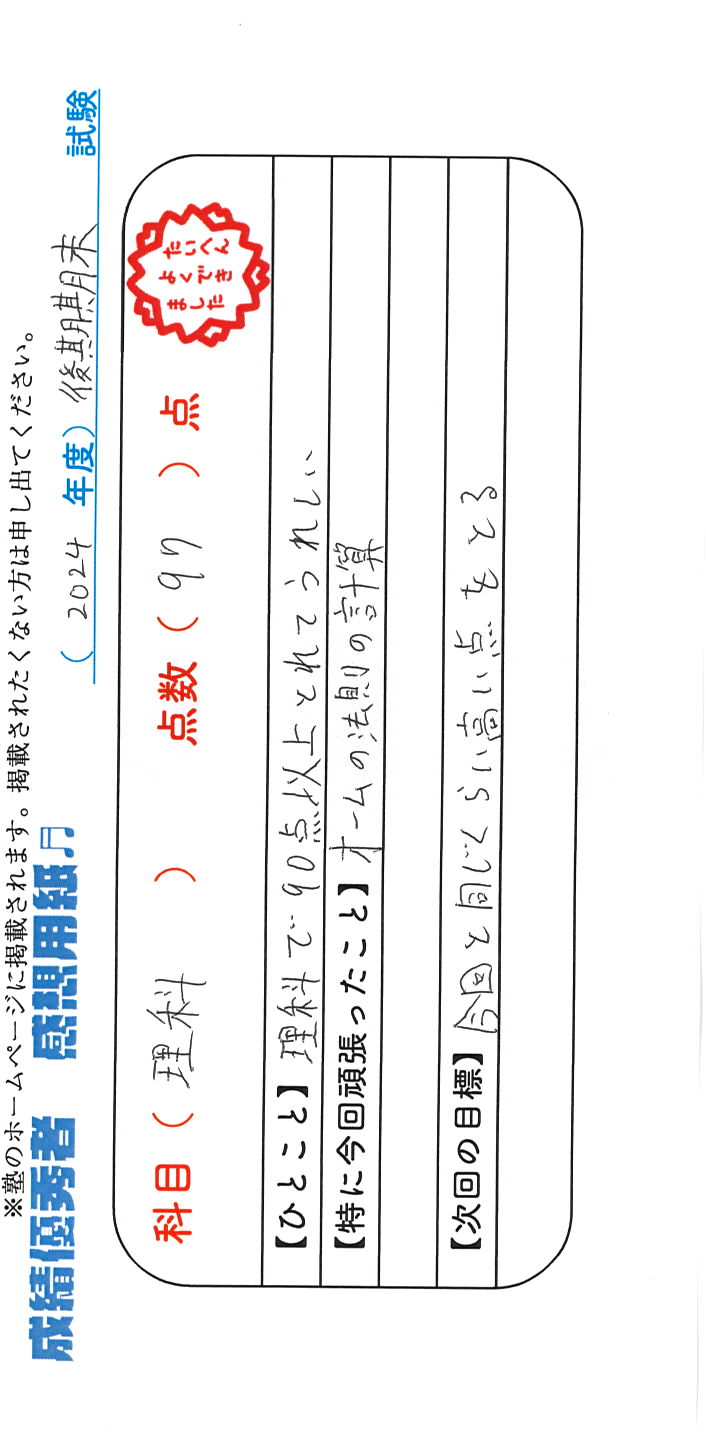 ※塾のホームページに掲載されます。掲載されたくない方は申し出てください。
成績優秀者 感想用紙♫
(2024 年度) 後期期末 試験
科目(理科) 点数(97)点
たいへん
よくでき
ました
【ひとこと】理科で90点以上とれてうれしい
【特に今回頑張ったこと】オームの法則の計算
【次回の目標】今回と同じくらい高い点をとる